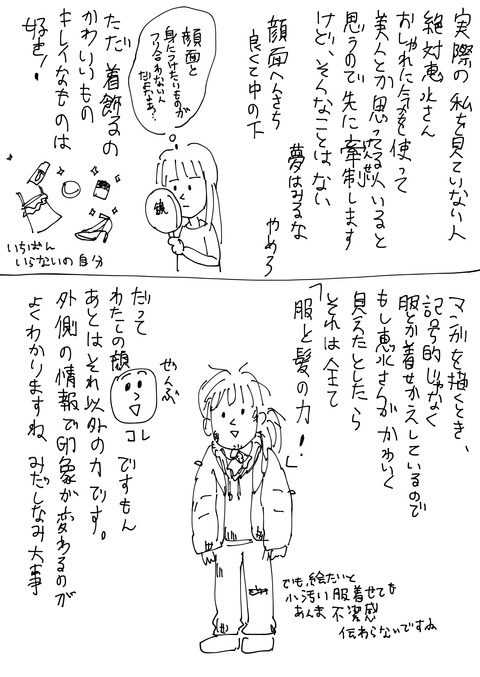 実際の私を見ていない人
絶対恵水さん
おしゃれに気を使って
美人とか思ってる人いると
思うので先に牽制します
けんせい
けど、そんなことはない
夢はみるな
やめろ
顔面へんさち
良くて中の下
顔面と
身につけたいものが
つり合わないん
だよなぁ?
鏡
ただ着飾るの
かわいいもの
キレイなものは
好き!
いちばん
いらないの自分
マンガを描くとき、
記号的じゃなく
服とか着せかえしているので
もし恵水さんが かわいく
見えたとしたら
それは全て
「服と髪の力!」
だって
わたしの顔
ぜんぶ
コレ
ですもん
あとはそれ以外の力です。
外側の情報で印象が変わるのが
よくわかりますね、みだしなみ大事
でも絵だいと
小汚い服着せても
あんま不潔感
伝わらないですね